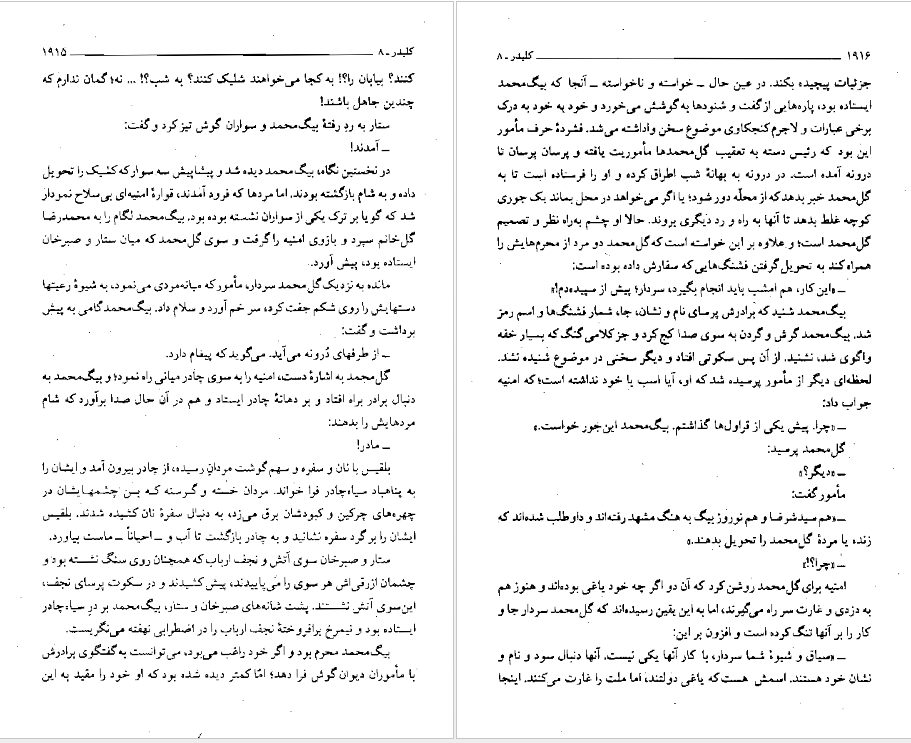 کلیدر ـ ۸ ۱۹۱۵
کنند؟ بیابان را؟! به کجا می‌خواهند شلیک کنند؟ به شب؟! ... نه؛ گمان ندارم که
چندین جاهل باشند!
ستار به ردِ رفتهٔ بیگ‌محمد و سواران گوش تیز کرد و گفت:
ـ آمدند!
در نخستین نگاه، بیگ‌محمد دیده شد و پیشاپیش سه سوار که کشیک را تحویل
داده و به شام بازگشته بودند. اما مردها که فرود آمدند، قوارهٔ امنیه‌ای بی‌سلاح نمودار
شد که گویا بر ترک یکی از سواران نشسته بوده بود. بیگ‌محمد لگام را به محمدرضا
گل‌خانم سپرد و بازوی امنیه را گرفت و سوی گل‌محمد که میان ستار و صبرخان
ایستاده بود، پیش آورد.
مانده به نزدیک گل‌محمد سردار، مأمور که میانه‌مردی می‌نمود، به شیوهٔ رعیتها
دستهایش را روی شکم جفت کرد، سر خم آورد و سلام داد. بیگ‌محمد گامی به پیش
برداشت و گفت:
ـ از طرفهای دُرونه می‌آید. می‌گوید که پیغام دارد.
گل‌محمد به اشارهٔ دست، امنیه را به سوی چادر میانی راه نمود؛ و بیگ‌محمد به
دنبال برادر براه افتاد و بر دهانهٔ چادر ایستاد و هم در آن حال صدا برآورد که شام
مردهایش را بدهند:
ـ مادر!
بلقیس با نان و سفره و سهم گوشت مردانِ رسیده، از چادر بیرون آمد و ایشان را
به پناهباد سیاه‌چادر فرا خواند. مردان خسته و گرسنه که بس چشمهایشان در
چهره‌های چرکین و کبودشان برق می‌زد، به دنبال سفرهٔ نان کشیده شدند. بلقیس
ایشان را بر گرد سفره نشانید و به چادر بازگشت تا آب و ـ احیاناً ـ ماست بیاورد.
ستار و صبرخان سوی آتش و نجف ارباب که همچنان روی سنگ نشسته بود و
چشمان ازرقی‌اش هر سوی را می‌پاییدند، پیش کشیدند و در سکوت پرسای نجف،
این‌سوی آتش نشستند. پشت شانه‌های صبرخان و ستار، بیگ‌محمد بر در سیاه‌چادر
ایستاده بود و نیمرخ برافروختهٔ نجف ارباب را در اضطرابی نهفته می‌نگریست.
بیگ‌محمد محرم بود و اگر خود راغب می‌بود، می‌توانست به گفتگوی برادرش
با مأموران دیوان گوش فرا دهد؛ امّا کمتر دیده شده بود که او خود را مقید به این
۱۹۱۶ کلیدر ـ ۸
جزئیات پیچیده بکند. در عین حال ـ خواسته و ناخواسته ـ آنجا که بیگ‌محمد
ایستاده بود، پاره‌هایی از گفت و شنودها به گوشش می‌خورد و خود به خود به درک
برخی عبارات و لاجرم کنجکاوی موضوع سخن واداشته می‌شد. فشردهٔ حرف مأمور
این بود که رئیس دسته به تعقیب گل‌محمدها مأموریت یافته و پرسان پرسان تا
درونه آمده است. در درونه به بهانهٔ شب اطراق کرده و او را فرستاده است تا به
گل‌محمد خبر بدهد که از محلّه دور شود؛ یا اگر می‌خواهد در محل بماند یک جوری
کوچه غلط بدهد تا آنها به راه و رد دیگری بروند. حالا او چشم به‌راه نظر و تصمیم
گل‌محمد است؛ و علاوه بر این خواسته است که گل‌محمد دو مرد از محرم‌هایش را
همراه کند به تحویل گرفتن فشنگ‌هایی که سفارش داده بوده است:
ـ «این کار، هم امشب باید انجام بگیرد، سردار؛ پیش از سپیده‌دم!»
بیگ‌محمد شنید که برادرش پرسای نام و نشان، جا، شمار فشنگ‌ها و اسم رمز
شد. بیگ‌محمد گرش و گردن به سوی صدا کج کرد و جز کلامی گنگ که بسیار خفه
واگوی شد، نشنید. از آن پس سکوتی افتاد و دیگر سخنی در موضوع شنیده نشد.
لحظه‌ای دیگر از مأمور پرسیده شد که او، آیا اسب با خود نداشته است؛ که امنیه
جواب داد:
ـ «چرا. پیش یکی از قراول‌ها گذاشتم. بیگ‌محمد این‌جور خواست.»
گل‌محمد پرسید:
ـ «دیگر؟»
مأمور گفت:
ـ «هم سیدشرضا و هم نوروز بیگ به هنگ مشهد رفته‌اند و داوطلب شده‌اند که
زنده یا مردهٔ گل‌محمد را تحویل بدهند.»
ـ «چرا؟!»
امنیه برای گل‌محمد روشن کرد که آن دو اگر چه خود یاغی بوده‌اند و هنوز هم
به دزدی و غارت سر راه می‌گیرند، اما به این یقین رسیده‌اند که گل‌محمد سردار جا و
کار را بر آنها تنگ کرده است و افزون بر این:
ـ «سیاق و شیوهٔ شما سردار، با کار آنها یکی نیست. آنها دنبال سود و نام و
نشان خود هستند. اسمش هست که یاغی دولتند، اما ملت را غارت می‌کنند. اینجا